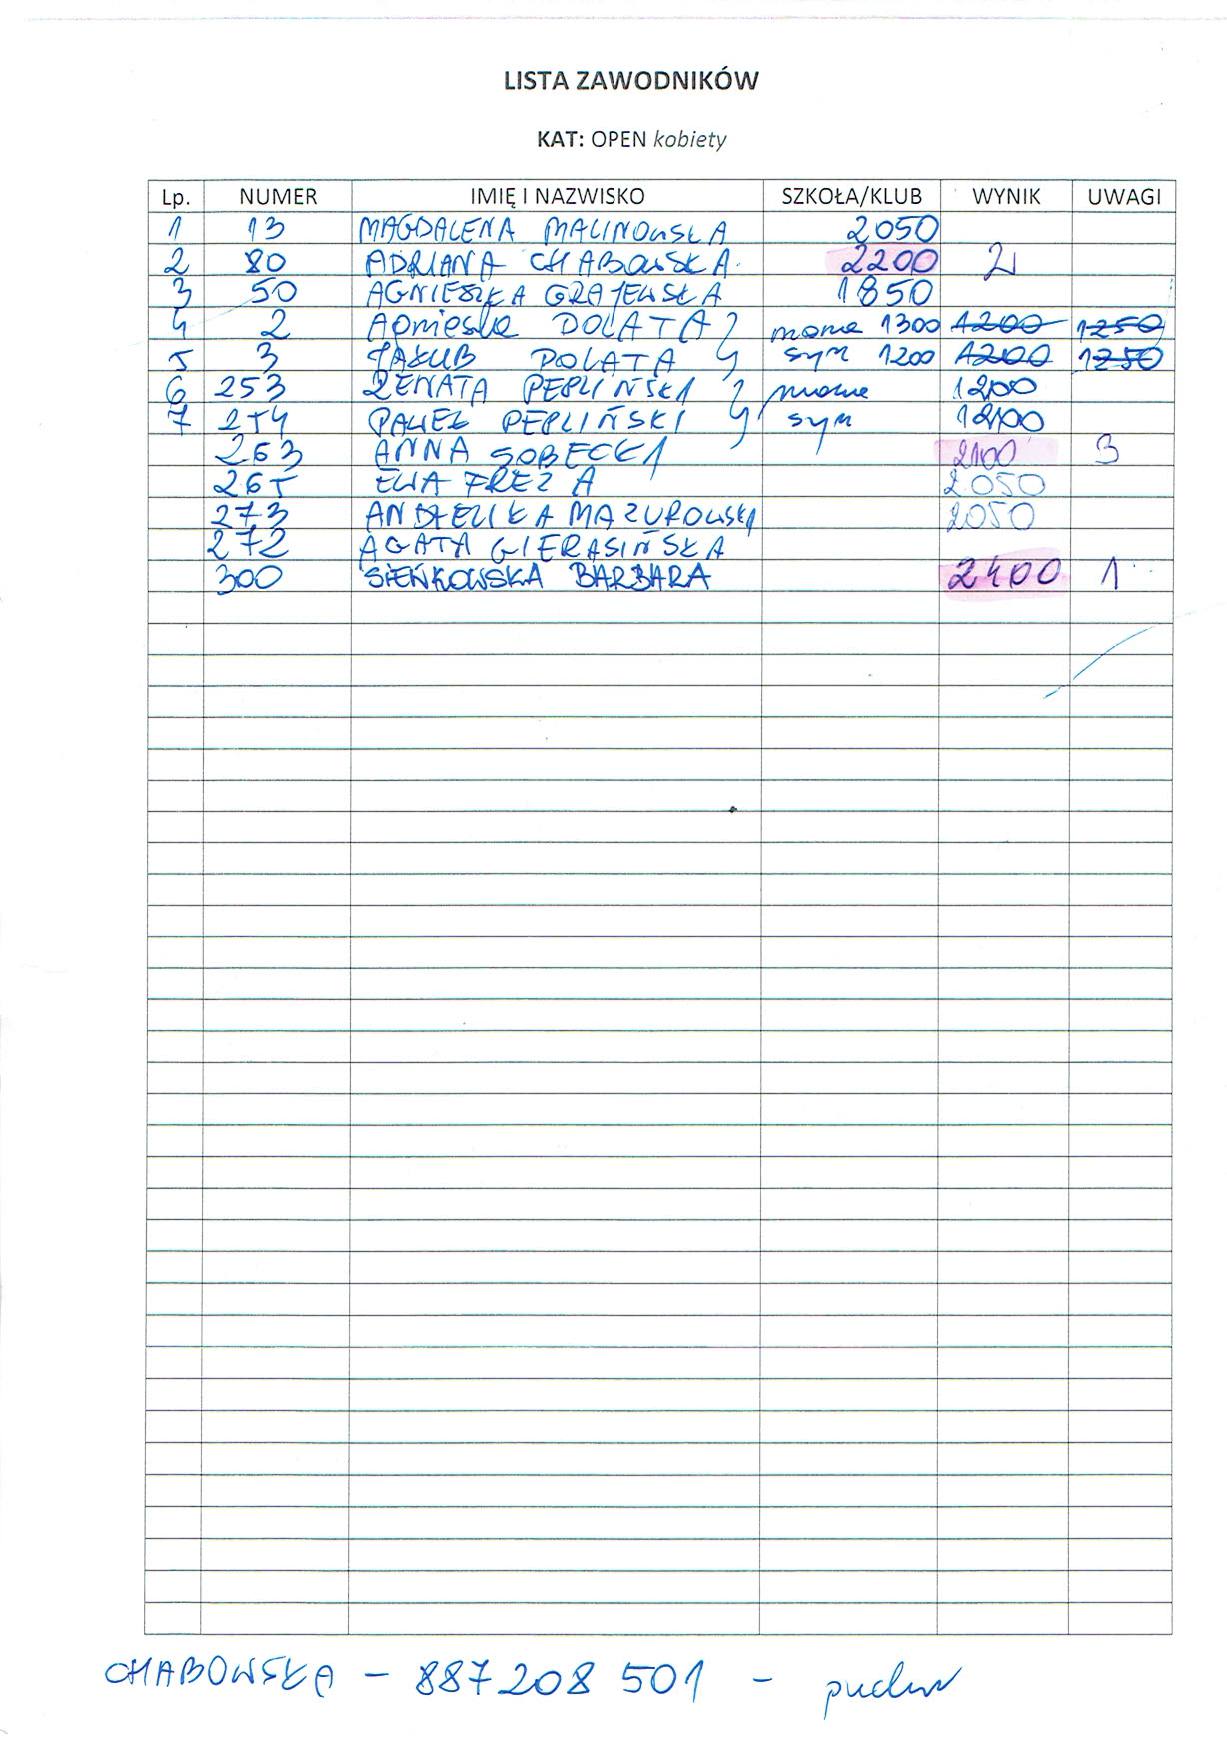 LISTA ZAWODNIKÓW
KAT: OPEN kobiety
Lp. NUMER IMIĘ I NAZWISKO SZKOŁA/KLUB WYNIK UWAGI
1 13 MAGDALENA MALINOWSKA 2050
2 80 ADRIANA CHABOWSKA. 2200 2
3 50 AGNIESZKA GRAJEWSKA 1850
4 2 Agnieszka DOLATA mama 1300 1200 1250
5 3 JAKUB DOLATA syn 1200 1200 1250
6 253 RENATA PEPLIŃSKA mama 1200
7 254 PAWEŁ PEPLIŃSKI syn 1200
263 ANNA SOBECKA 2100 3
265 EWA FREZA 2050
273 ANDŻELIKA MAZUROWSKA 2050
272 AGATA GIERASIŃSKA
300 SIEŃKOWSKA BARBARA 2400 1
CHABOWSKA - 887 208 501 - puchar